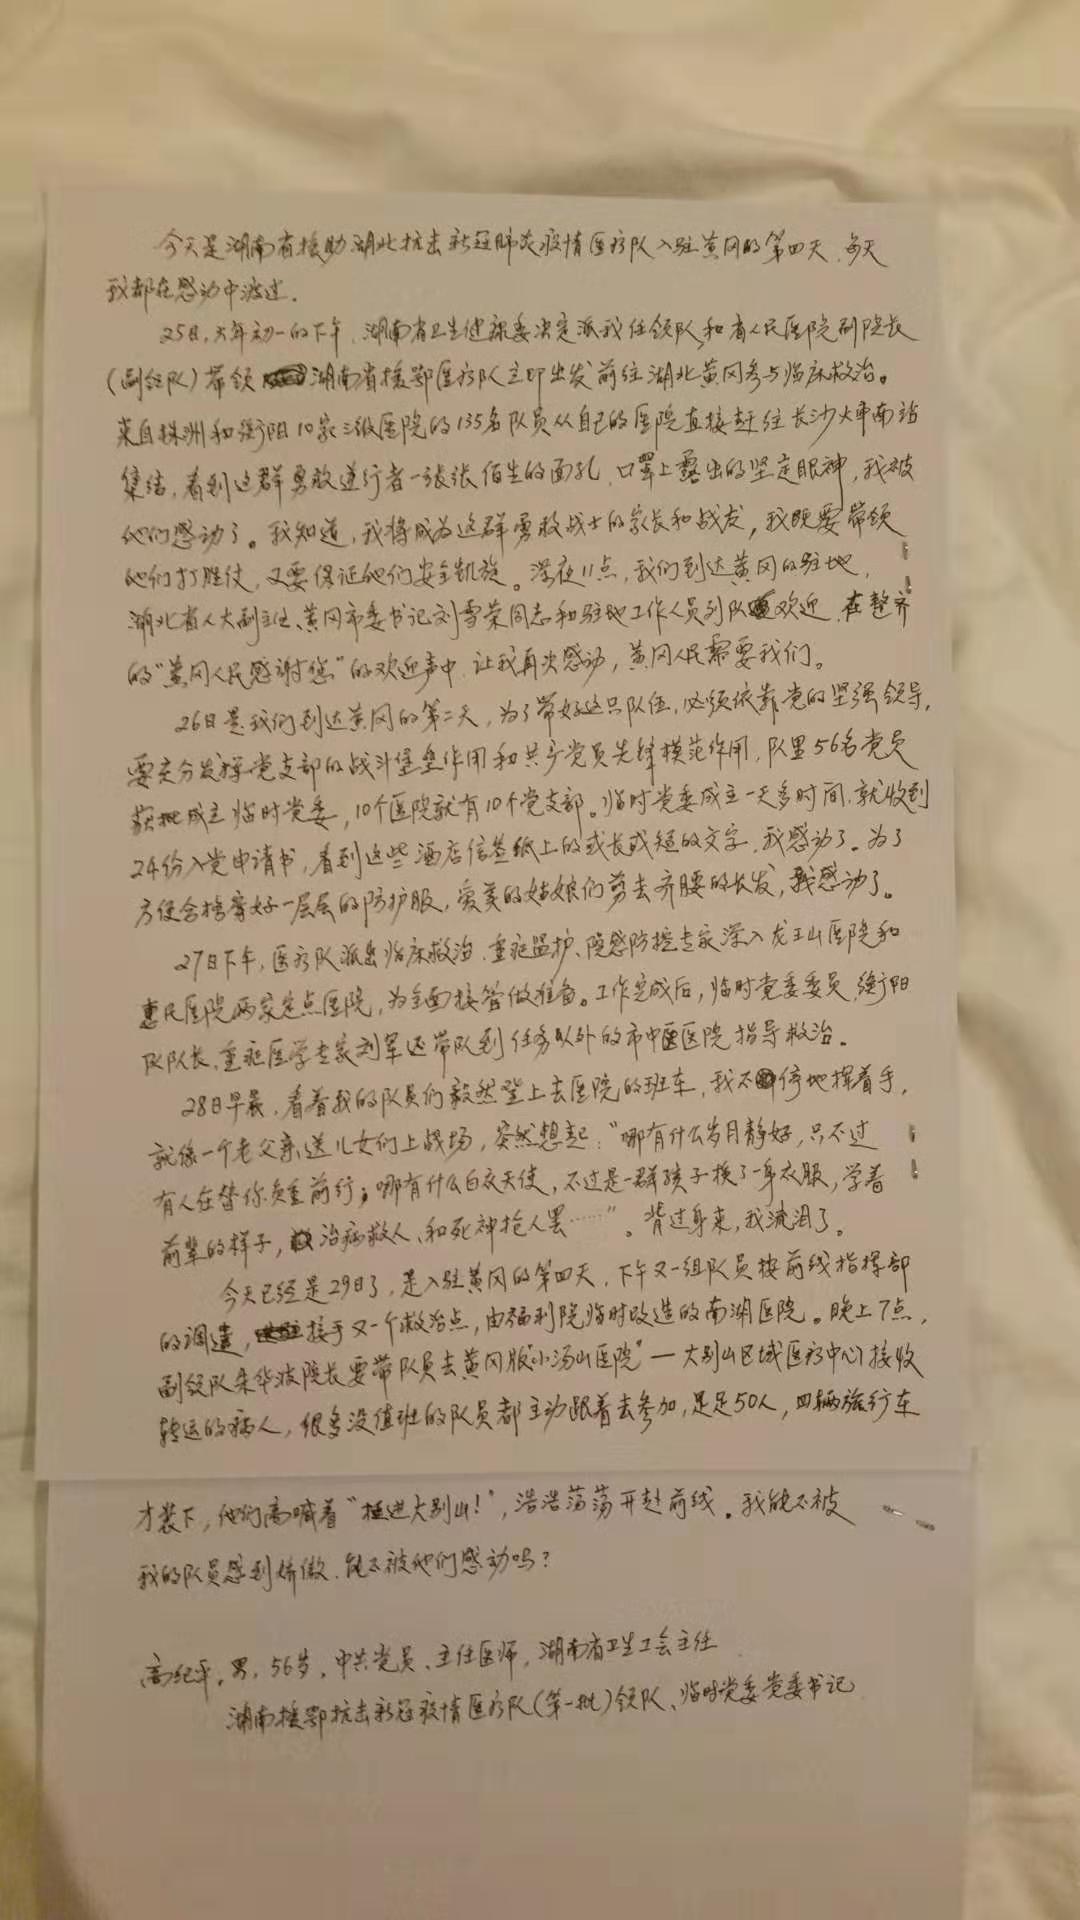 今天是湖南省援助湖北抗击新冠肺炎疫情医疗队入驻黄冈的第四天,每天
我都在感动中渡过.
25日,大年初一的下午,湖南省卫生健康委决定派我任领队和省人民医院副院长
(副领队)带领湖南省援鄂医疗队立即出发前往湖北黄冈参与临床救治。
来自株洲和衡阳10家三级医院的135名队员从自己的医院直接赶往长沙火车南站
集结,看到这群勇敢逆行者一张张陌生的面孔,口罩上露出的坚定眼神,我被
他们感动了。我知道,我将成为这群勇敢战士的家长和战友,我既要带领
他们打胜仗,又要保证他们安全凯旋。深夜11点,我们到达黄冈的驻地,
湖北省人大副主任、黄冈市委书记刘雪荣同志和驻地工作人员列队欢迎,在整齐
的“黄冈人民感谢您”的欢迎声中,让我再次感动,黄冈人民需要我们。
26日是我们到达黄冈的第二天,为了带好这只队伍,必须依靠党的坚强领导,
要充分发挥党支部的战斗堡垒作用和共产党员先锋模范作用,队里56名党员
获批成立临时党委,10个医院就有10个党支部。临时党委成立一天多时间,就收到
24份入党申请书,看到这些酒店信签纸上的或长或短的文字,我感动了。为了
方便合格穿好一层层的防护服,爱美的姑娘们剪去齐腰的长发,我感动了。
27日下午,医疗队派出临床救治、重症监护、院感防控专家深入龙王山医院和
惠民医院两家定点医院,为全面接管做准备。工作完成后,临时党委委员、衡阳
队队长、重症医学专家刘军还带队到任务以外的市中医医院指导救治。
28日早晨,看着我的队员们毅然登上去医院的班车,我不停地挥着手,
就像一个老父亲送儿女们上战场,突然想起:“哪有什么岁月静好,只不过
有人在替你负重前行;哪有什么白衣天使,不过是一群孩子换了一身衣服,学着
前辈的样子,治病救人、和死神抢人罢……”。背过身来,我流泪了。
今天已经是29日了,是入驻黄冈的第四天,下午又一组队员按前线指挥部
的调遣,接手又一个救治点,由福利院临时改造的南湖医院。晚上7点,
副领队朱华波院长要带队员去黄冈版“小汤山医院”—大别山区域医疗中心接收
转运的病人,很多没值班的队员都主动跟着去参加,足足50人,四辆旅行车
才装下,他们高喊着“挺进大别山!”,浩浩荡荡开赴前线。我能不被
我的队员感到骄傲,能不被他们感动吗?
高纪平,男,56岁,中共党员、主任医师,湖南省卫生工会主任
湖南援鄂抗击新冠疫情医疗队(第一批)领队、临时党委党委书记